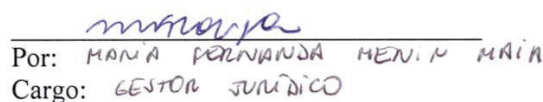 Por: MARIA FERNANDA MENIN MAIA
Cargo: GESTOR JURÍDICO